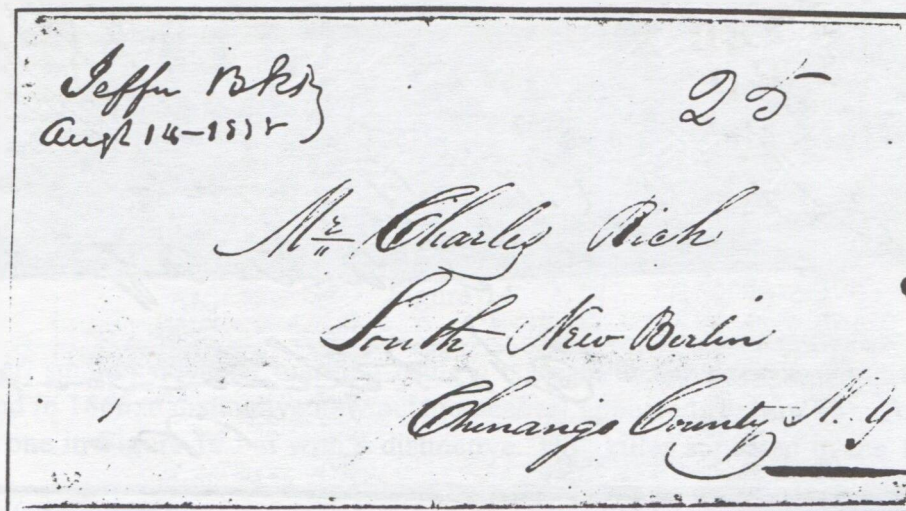 Jeffn Bks
Augt 14-18
25
Mr Charles Rich
South New Berlin
Chenango County N.Y